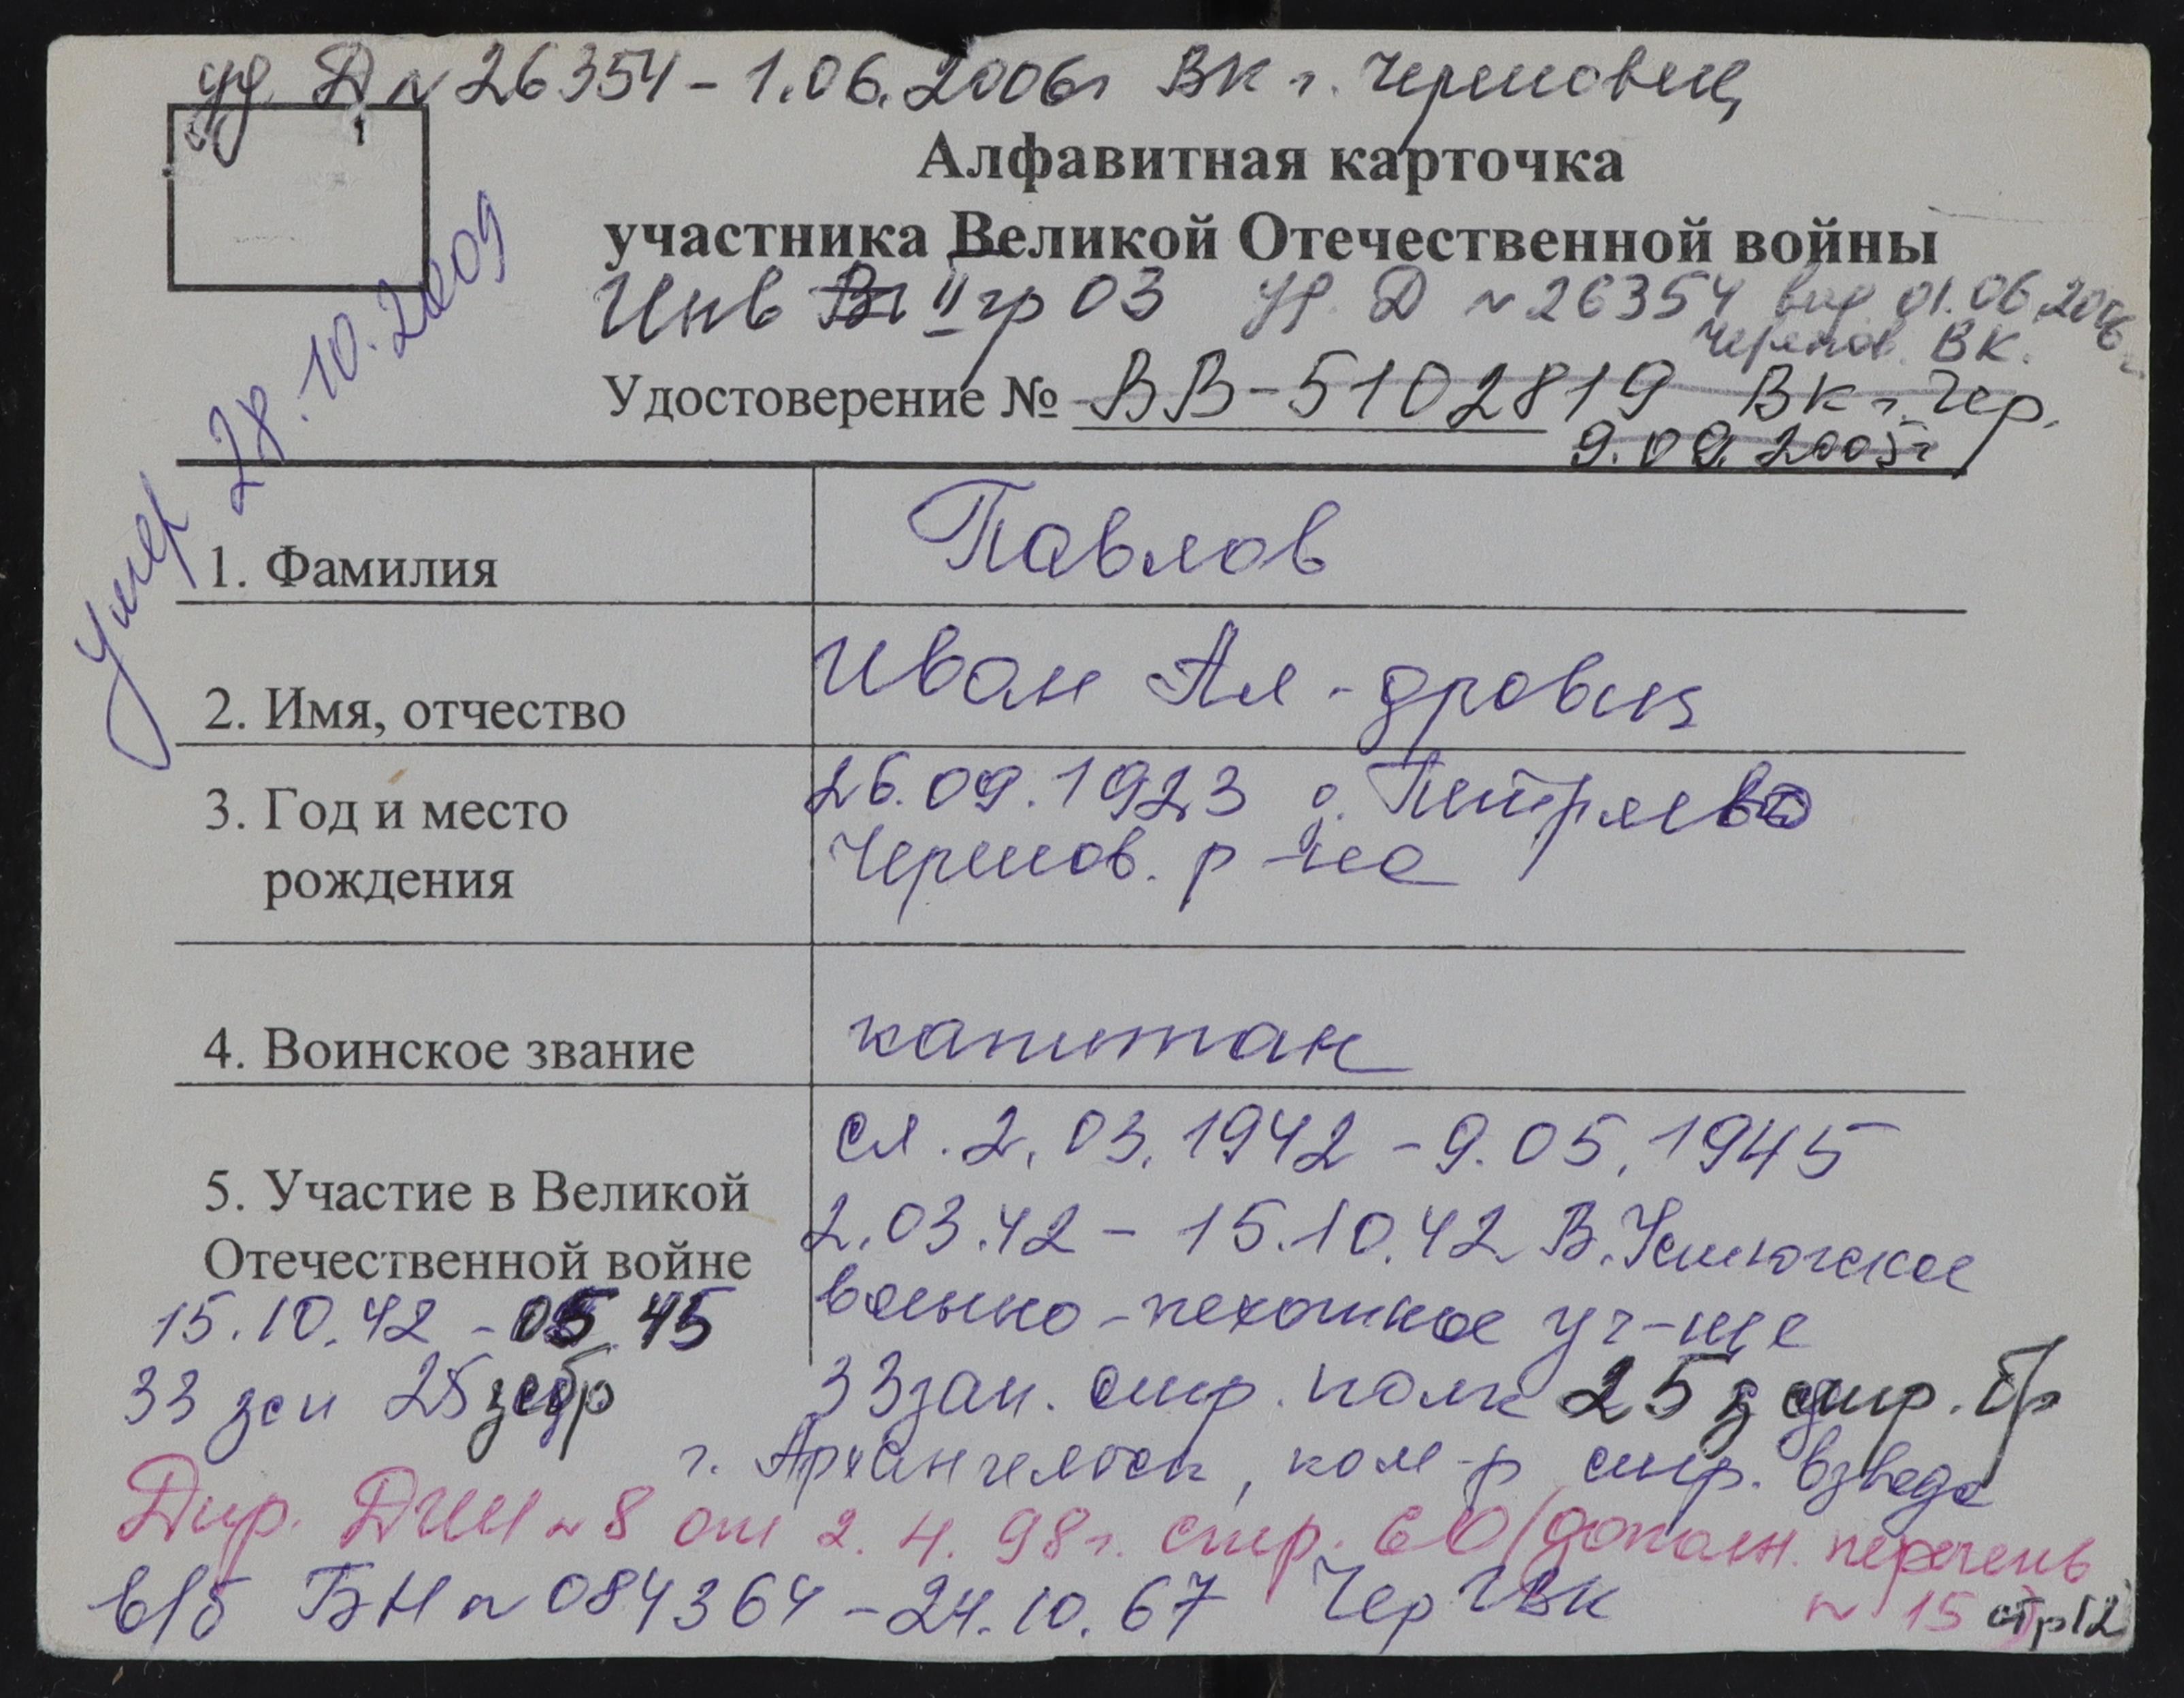 уд. Д № 26354 - 1.06.2006г ВК г. Череповец
Алфавитная карточка
участника Великой Отечественной войны
Инв II гр 03 уд. Д № 26354 выд 01.06.2006г.
Черепов. ВК.
Удостоверение № ВВ-5102819 ВК г. Чер.
9.09.2005г
Умер 28.10.2009
1. Фамилия Павлов
2. Имя, отчество Иван Ал-дрович
3. Год и место 26.09.1923 д. Петряево
рождения Черепов. р-на
4. Воинское звание капитан
сл. 2.03.1942 - 9.05.1945
5. Участие в Великой 2.03.42 - 15.10.42 В.Устюгское
Отечественной войне военно-пехотное уч-ще
15.10.42 - 05.45
33 зсп 25 зсбр 33 зап. стр. полк 25 з стр. бр
г. Архангельск, ком-р стр. взвода
Дир. ДГШ № 8 от 2.4.98г. стр. 60 (дополн. перечень
№ 15) стр12
в/б БН № 084364 - 24.10.67 Чер ГВК